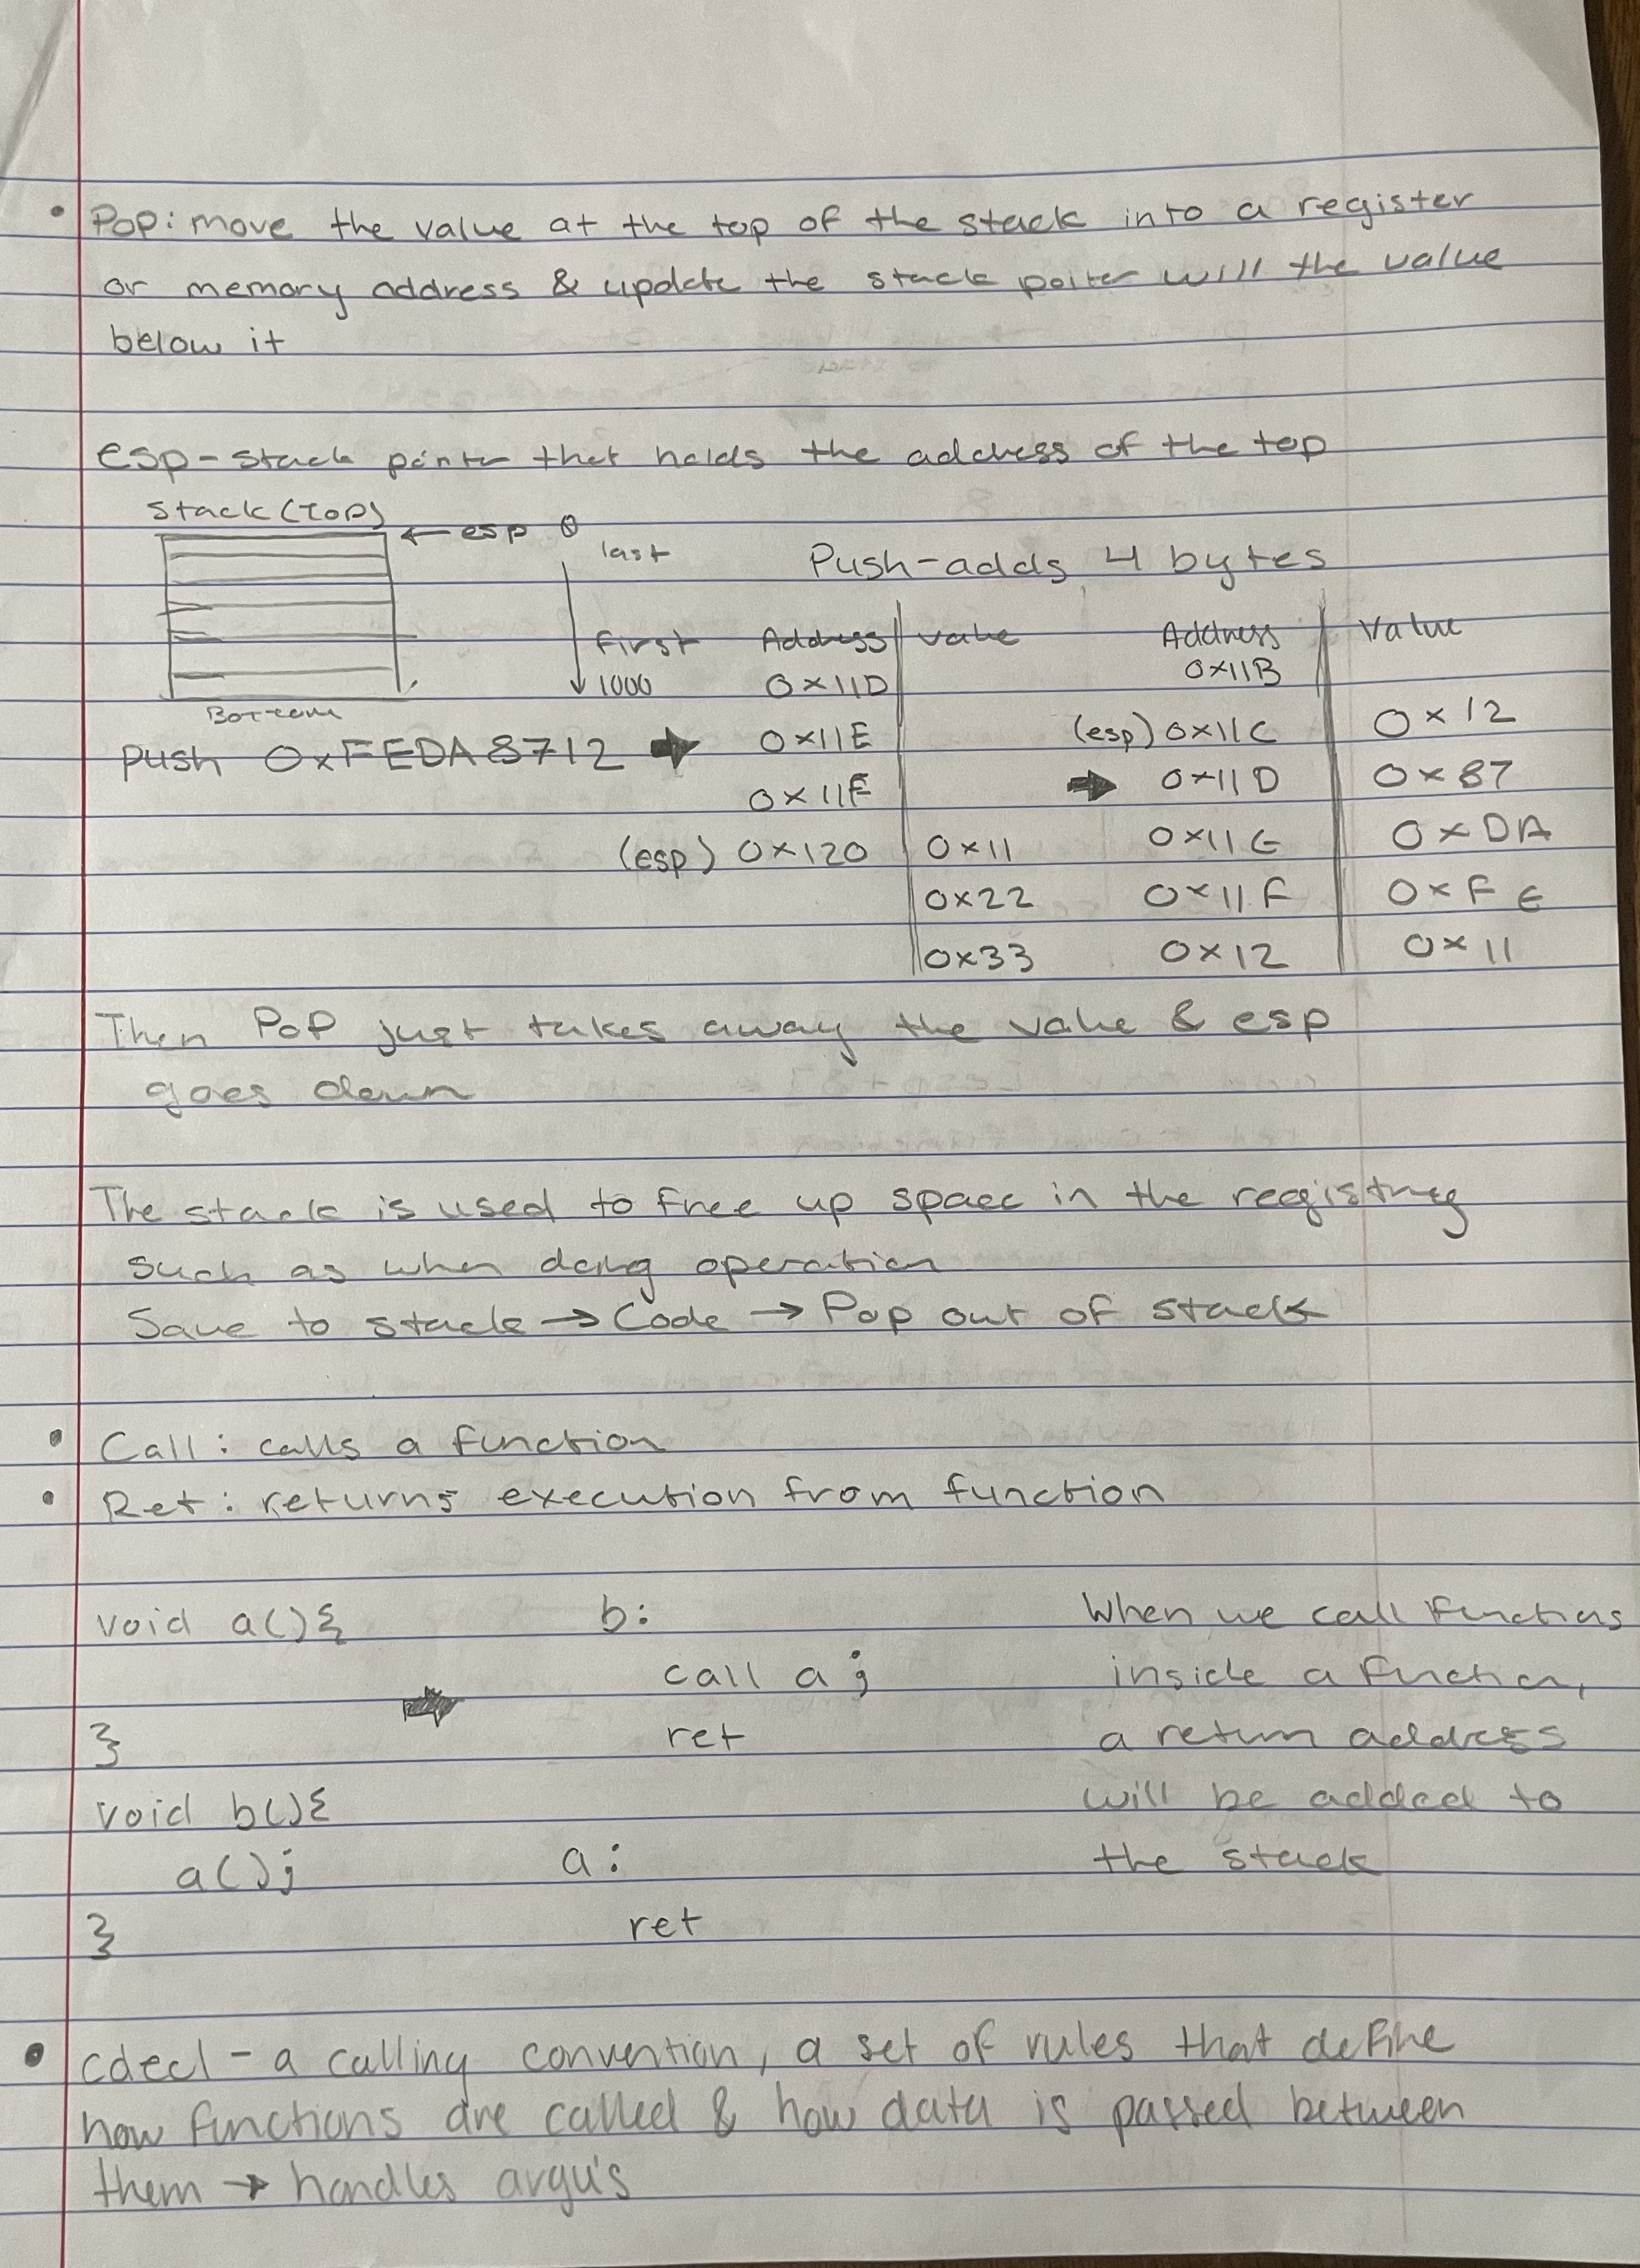 • Pop: move the value at the top of the stack into a register
or memory address & update the stack poiter will the value
below it
esp - stack pointer that holds the address of the top
Stack (Top)
← esp 0
last
Push - adds 4 bytes
First Address Value Address Value
1000 0x11D 0x11B
Bottom
push 0xFEDA8712 → 0x11E (esp) 0x11C 0x12
0x11F → 0x11D 0x87
(esp) 0x120 0x11 0x11E 0xDA
0x22 0x11F 0xFE
0x33 0x12 0x11
Then Pop just takes away the value & esp
goes down
The stack is used to free up space in the registry
such as when doing operation
Save to stack → Code → Pop out of stack
• Call: calls a function
• Ret: returns execution from function
void a(){ b: When we call functions
call a; inside a function,
→
} ret a return address
void b(){ will be added to
a(); a: the stack
} ret
• cdecl - a calling convention, a set of rules that define
how functions are called & how data is passed between
them → handles argu's